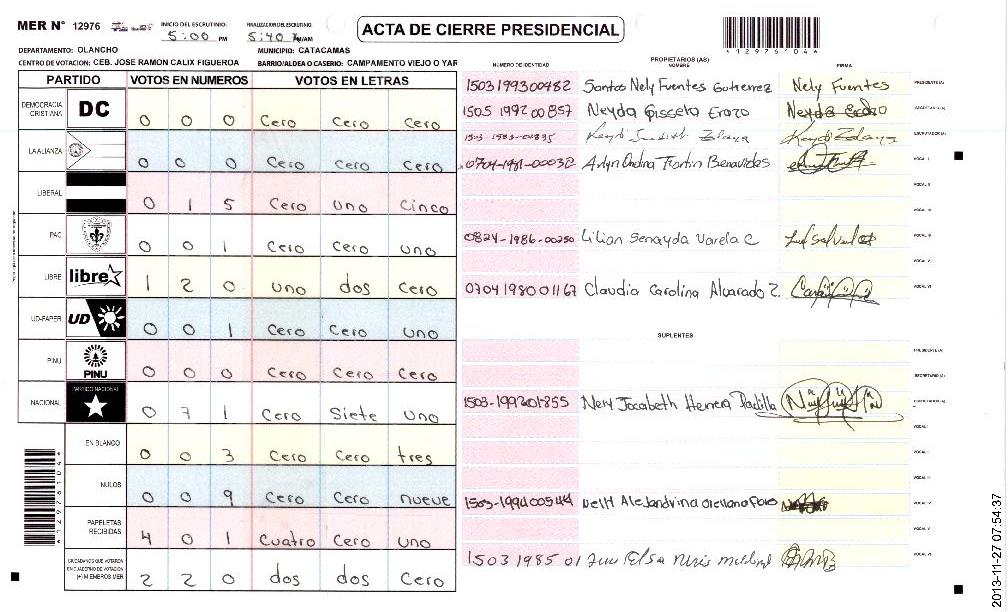 MER N° 12976 INICIO DEL ESCRUTINIO: 5:00 PM FINALIZACIÓN DEL ESCRUTINIO: 5:40 AM
ACTA DE CIERRE PRESIDENCIAL
*12976104*
DEPARTAMENTO: OLANCHO MUNICIPIO: CATACAMAS
CENTRO DE VOTACION: CEB. JOSE RAMON CALIX FIGUEROA BARRIO/ALDEA O CASERIO: CAMPAMENTO VIEJO O YAR
PARTIDO VOTOS EN NUMEROS VOTOS EN LETRAS
DEMOCRACIA CRISTIANA DC 0 0 0 Cero Cero Cero
LA ALIANZA 0 0 0 Cero Cero Cero
LIBERAL 0 1 5 Cero uno Cinco
PAC 0 0 1 Cero Cero uno
LIBRE libre 1 2 0 uno dos Cero
UD-FAPER UD 0 0 1 Cero Cero uno
PINU PINU 0 0 0 Cero Cero Cero
NACIONAL PARTIDO NACIONAL 0 7 1 Cero Siete uno
EN BLANCO 0 0 3 Cero Cero tres
NULOS 0 0 9 Cero Cero nueve
PAPELETAS RECIBIDAS 4 0 1 Cuatro Cero uno
CIUDADANOS QUE VOTARON EN CUADERNO DE VOTACION (+) MIEMBROS MER 2 2 0 dos dos Cero
*12976104*
PROPIETARIOS (AS)
NUMERO DE IDENTIDAD NOMBRE FIRMA
1503199300482 Santos Nely Fuentes Gutierrez Nely Fuentes PRESIDENTE (A)
1505 1992 00857 Neyda Gissela Erazo Neyda Erazo SECRETARIO (A)
1503-1983-04835 Keydi Judith Zelaya Keydi Zelaya ESCRUTADOR (A)
0704-1981-00032 Arlyn Ondina Flortin Benavides VOCAL I
VOCAL II
VOCAL III
0824-1986-00250 Lilian Senayda Varela C VOCAL IV
VOCAL V
0704 1980 01167 Claudia Carolina Alvarado Z. VOCAL VI
SUPLENTES
PRESIDENTE (A)
SECRETARIO (A)
1503-199201855 Nery Jacabeth Herrera Padilla ESCRUTADOR (A)
VOCAL I
VOCAL II
VOCAL III
1503-199400544 Alejandrina Orellana VOCAL IV
VOCAL V
1503 1985 01 Elsa VOCAL VI
2013-11-27 07:54:37